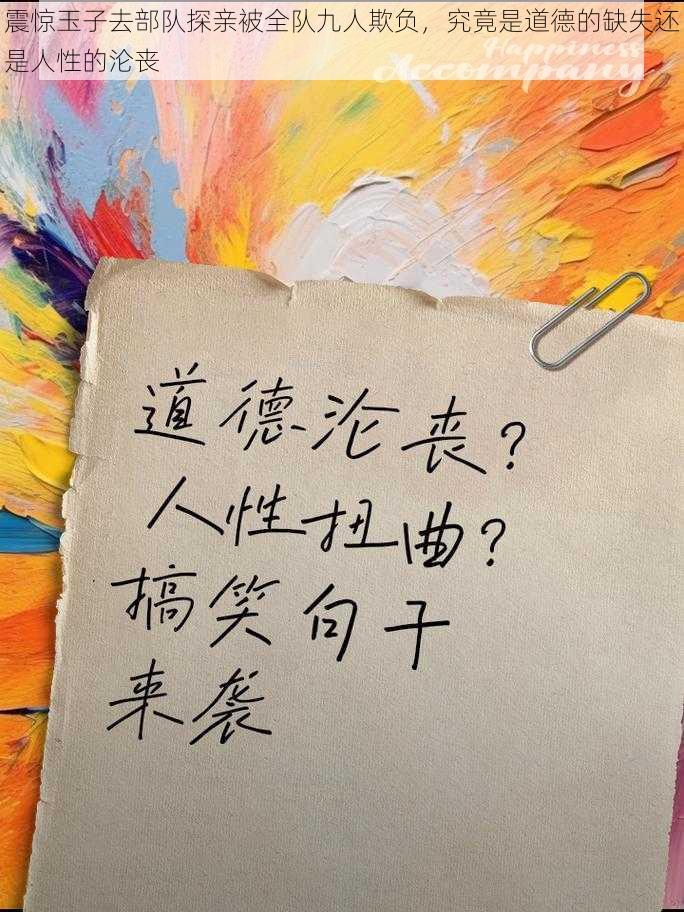 震惊玉子去部队探亲被全队九人欺负，究竟是道德的缺失还
是人性的沦丧
Happiness
Accompany
道德沦丧？
人性扭曲？
搞笑句子
来袭